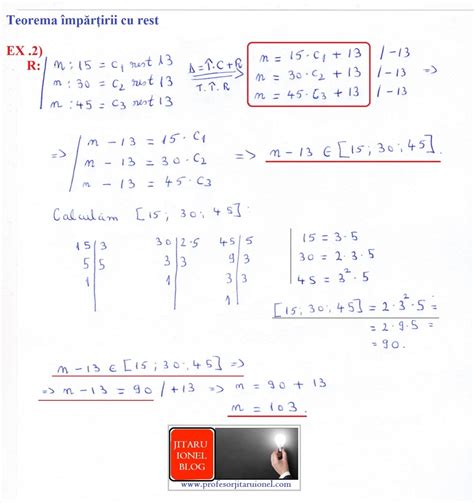 Teorema împărțirii cu rest
EX .2)
R:
n : 15 = c₁ rest 13
n : 30 = c₂ rest 13
n : 45 = c₃ rest 13
Δ = Î . C + R
T. Î. R
n = 15 · c₁ + 13 / -13
n = 30 · c₂ + 13 / -13 =>
n = 45 · c₃ + 13 / -13
=> n - 13 = 15 · c₁
n - 13 = 30 · c₂ => n - 13 ∈ [15 ; 30 ; 45].
n - 13 = 45 · c₃
Calculăm [15 ; 30 ; 45].
15 | 3
5 | 5
1
30 | 2·5
3 | 3
1
45 | 5
9 | 3
3 | 3
1
15 = 3 · 5
30 = 2 · 3 · 5
45 = 3² · 5
[15 ; 30 ; 45] = 2 · 3² · 5 =
= 2 · 9 · 5 =
= 90.
n - 13 ∈ [15 ; 30 ; 45] =>
=> n - 13 = 90 / +13 => n = 90 + 13
n = 103.
JITARU
IONEL
BLOG
www.profesorjitaruionel.com